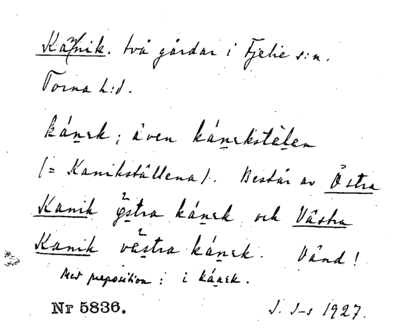 Kanik. två gårdar i Fjelie s:n.
Torna h:d.
kánek; även kánekstèlen
(= Kanikställena). Består av Östra
Kanik östra kánek och Västra
Kanik västra kánek. Vänd!
Med preposition: i kánek.
Nr 5836. J. S-s 1927.